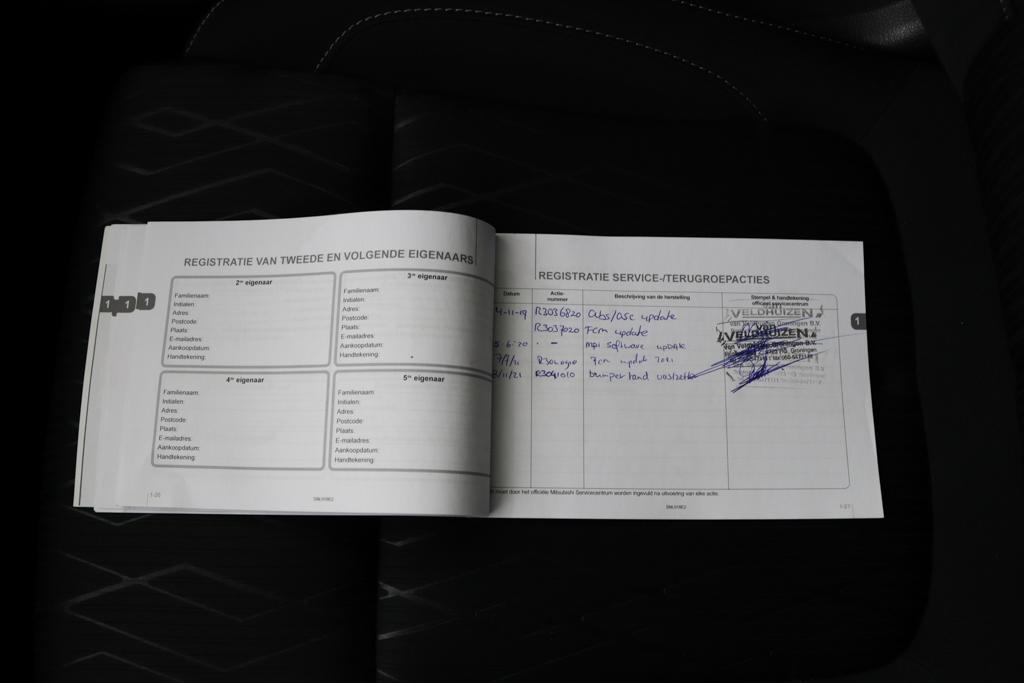 REGISTRATIE VAN TWEEDE EN VOLGENDE EIGENAARS
2de eigenaar
Familienaam:
Initialen:
Adres:
Postcode:
Plaats:
E-mailadres:
Aankoopdatum:
Handtekening:
3de eigenaar
Familienaam:
Initialen:
Adres:
Postcode:
Plaats:
E-mailadres:
Aankoopdatum:
Handtekening:
4de eigenaar
Familienaam:
Initialen:
Adres:
Postcode:
Plaats:
E-mailadres:
Aankoopdatum:
Handtekening:
5de eigenaar
Familienaam:
Initialen:
Adres:
Postcode:
Plaats:
E-mailadres:
Aankoopdatum:
Handtekening:
1 1 1
1-20
REGISTRATIE SERVICE-/TERUGROEPACTIES
Datum Actie-nummer Beschrijving van de herstelling Stempel & handtekening officieel servicecentrum
4-11-19 R3036820 abs/asc update
R3037020 Fcm update
5-6-20 - - mpi software update
Fcm updat
/11/21 R3041010 bumper rand vastzetten
VELDHUIZEN
Van
VELDHUIZEN
Groningen B.V.
1
moet door het officiële Mitsubishi Servicecentrum worden ingevuld na uitvoering van elke actie.
1-21